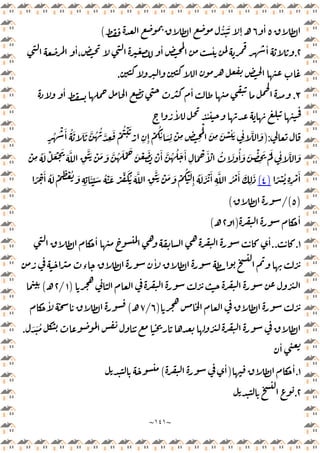 الطلاق ٥ أو٦ هـ إلا يُبدل موضع الطلاق بموضع العدة فقط)
٢.وثلاثة أشهر قمرية لمن يئسن من المحيض أو للصغيرة التي لا تحيض أو،المرضعة التي
غاب عنها الحيض بفعل هرمون اللاكتين والبرولاكتين.
٣. وعدة الحمل
قال تعالى:(وَاللَّائِي يَئِسْنَ مِنَ الْمَحِيضِ مِن نِّسَائِكُمْ إِنِ ارْتَبْتُمْ فَعِدَّتُهُنَّ ثَلَاثَةُ أَشْهُرٍ
وَاللَّائِي لَمْ يَحِضْنَ وَأُولَاتُ الْأَحْمَالِ أَجَلُهُنَّ أَن يَضَعْنَ حَمْلَهُنَّ وَمَن يَتَّقِ اللَّهَ يَجْعَل لَّهُ مِنْ
أَمْرِهِ يُسْرًا [٤] ذَٰلِكَ أَمْرُ اللَّهِ أَنزَلَهُ إِلَيْكُمْ وَمَن يَتَّقِ اللَّهَ يُكَفِّرْ عَنْهُ سَيِّئَاتِهِ وَيُعْظِمْ لَهُ أَجْرًا
(٥)/سورة الطلاق)
أحكام سورة البقرة(١و٢هـ)
١.كانت..أي سورة كانت سورة البقرة هي السابقة وهي المنسوخ منها أحكام الطلاق التي
نزلت بها وتم النسخ بواسطة سورة الطلاق لأن سورة الطلاق جاءت متراخية في زمن
النزول عن سورة البقرة حيث نزلت سورة البقرة في العام الثاني هجريا (١/٢هـ) بينما
نزلت سورة الطلاق في العام الخامس هجريا(٦/٧هـ) فسورة الطلاق ناسخة لأحكام
الطلاق في سورة البقرة لنزولها بعدها تاريخيا مع تناول نفس الموضوعات لكن مُبَدَّلة.
يعني أن
١.أحكام الطلاق فيها(أي في سورة البقرة) منسوخة بالتبديل
٢.نوع النسخ بالتبديل
~١٤١~